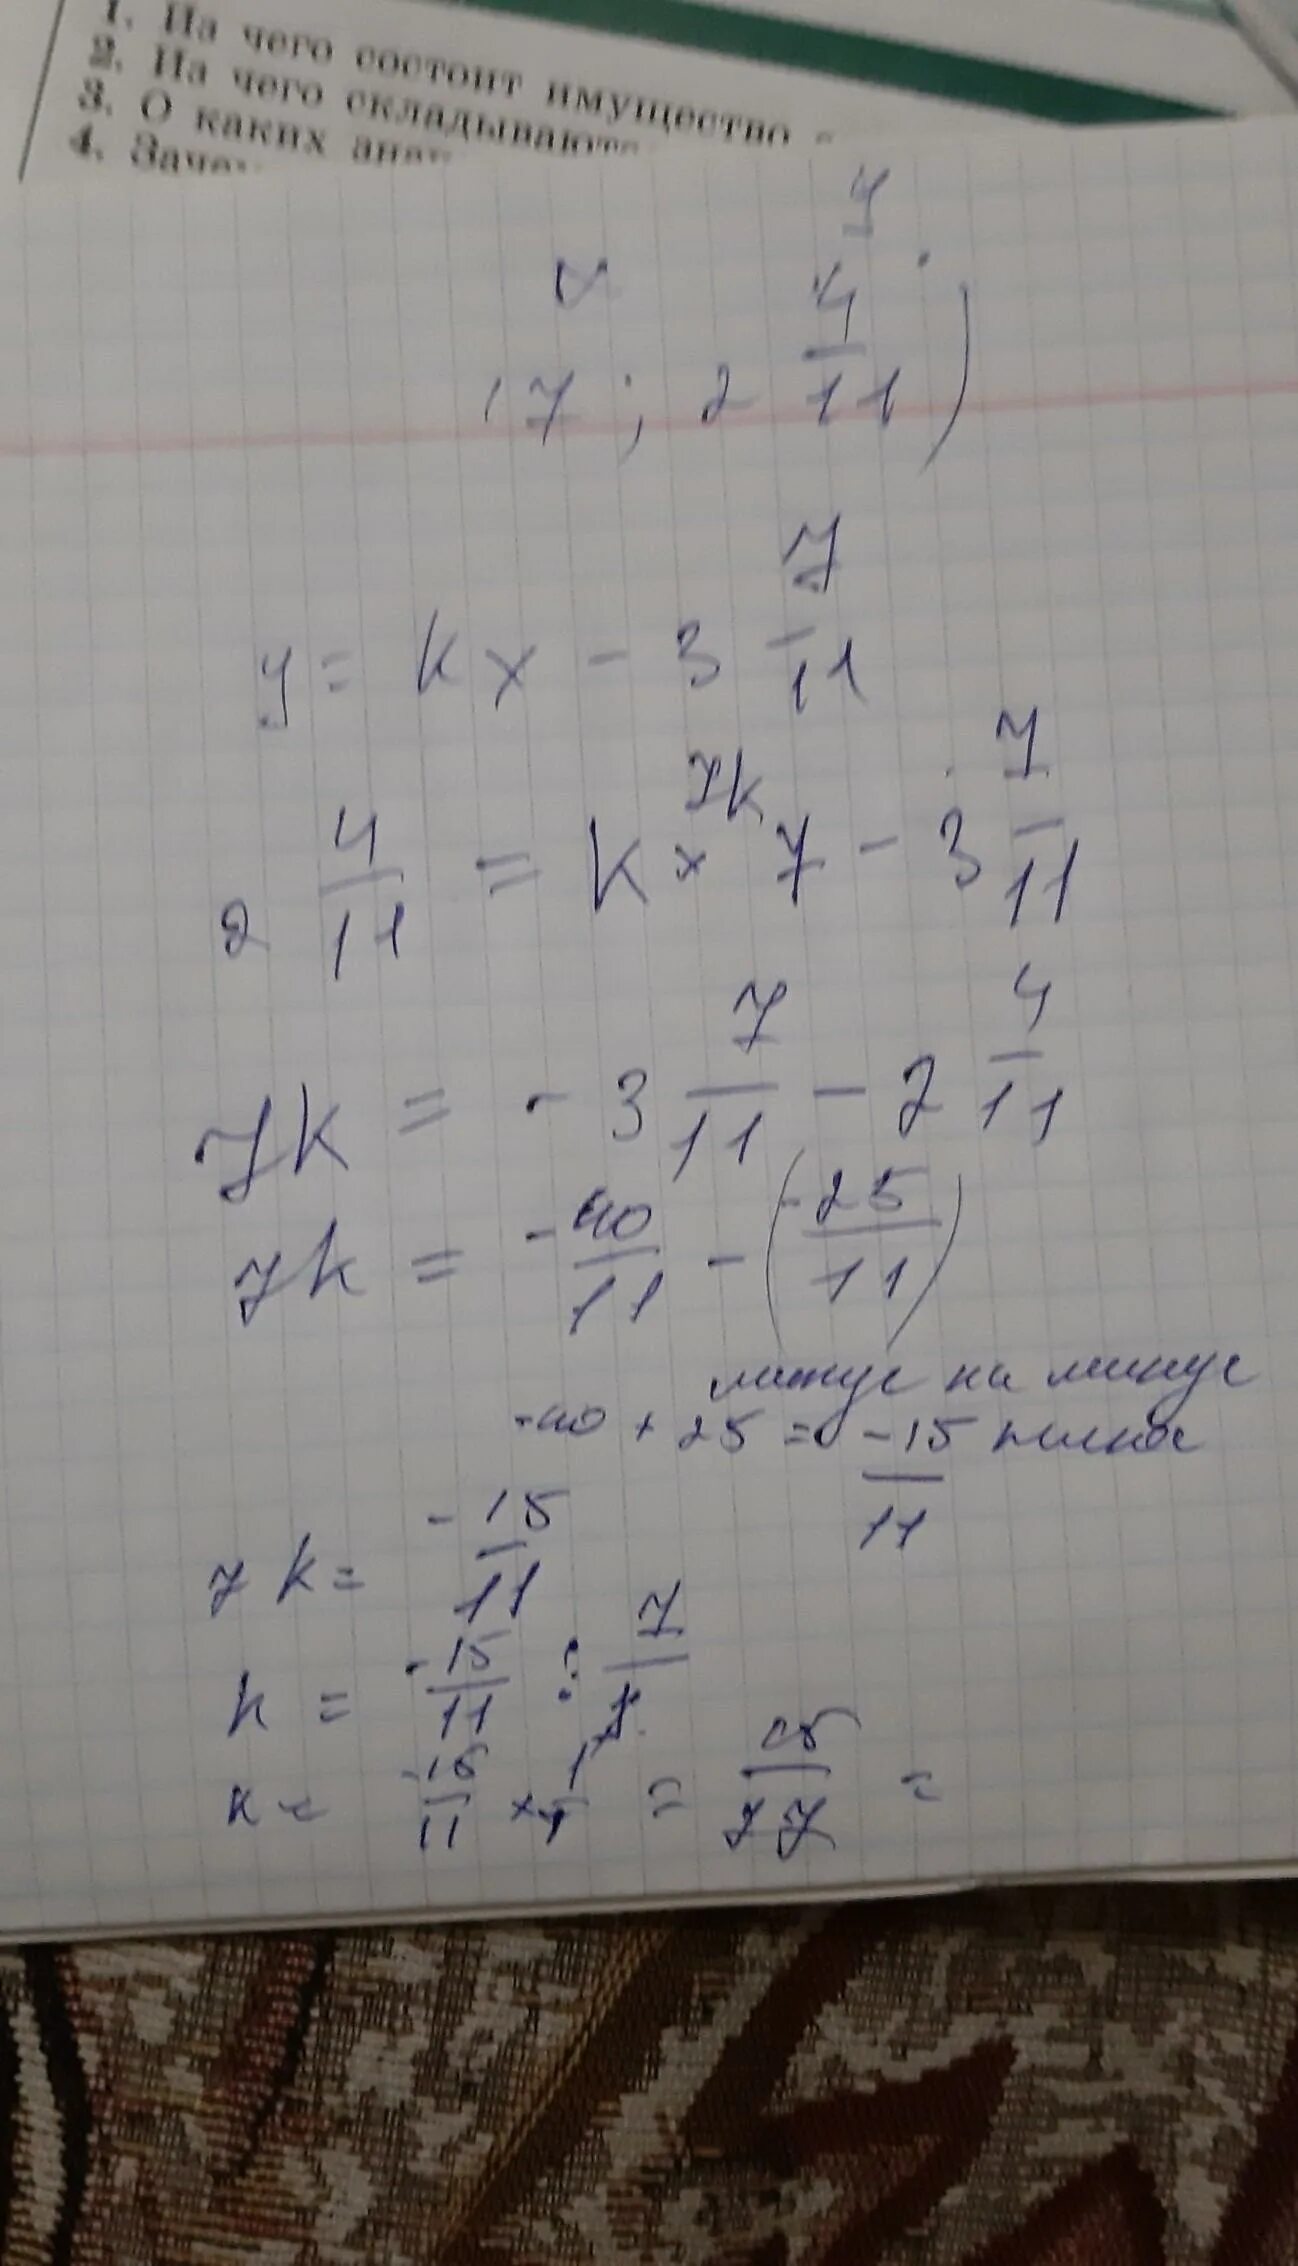 1. Из чего состоит имущество
2. Из чего складывают
3. О каких
4. Заче
4
17 ; 2 4/11 )
y = kx - 3 7/11
7k
2 4/11 = k × 7 - 3 7/11
7k = - 3 7/11 - 2 4/11
7k = - 40/11 - (- 25/11)
минус на минус
-40 + 25 = -15/11 плюс
7k = - 15/11
k = - 15/11 : 7/1
k = - 15/11 × 1/7 = 15/77 =